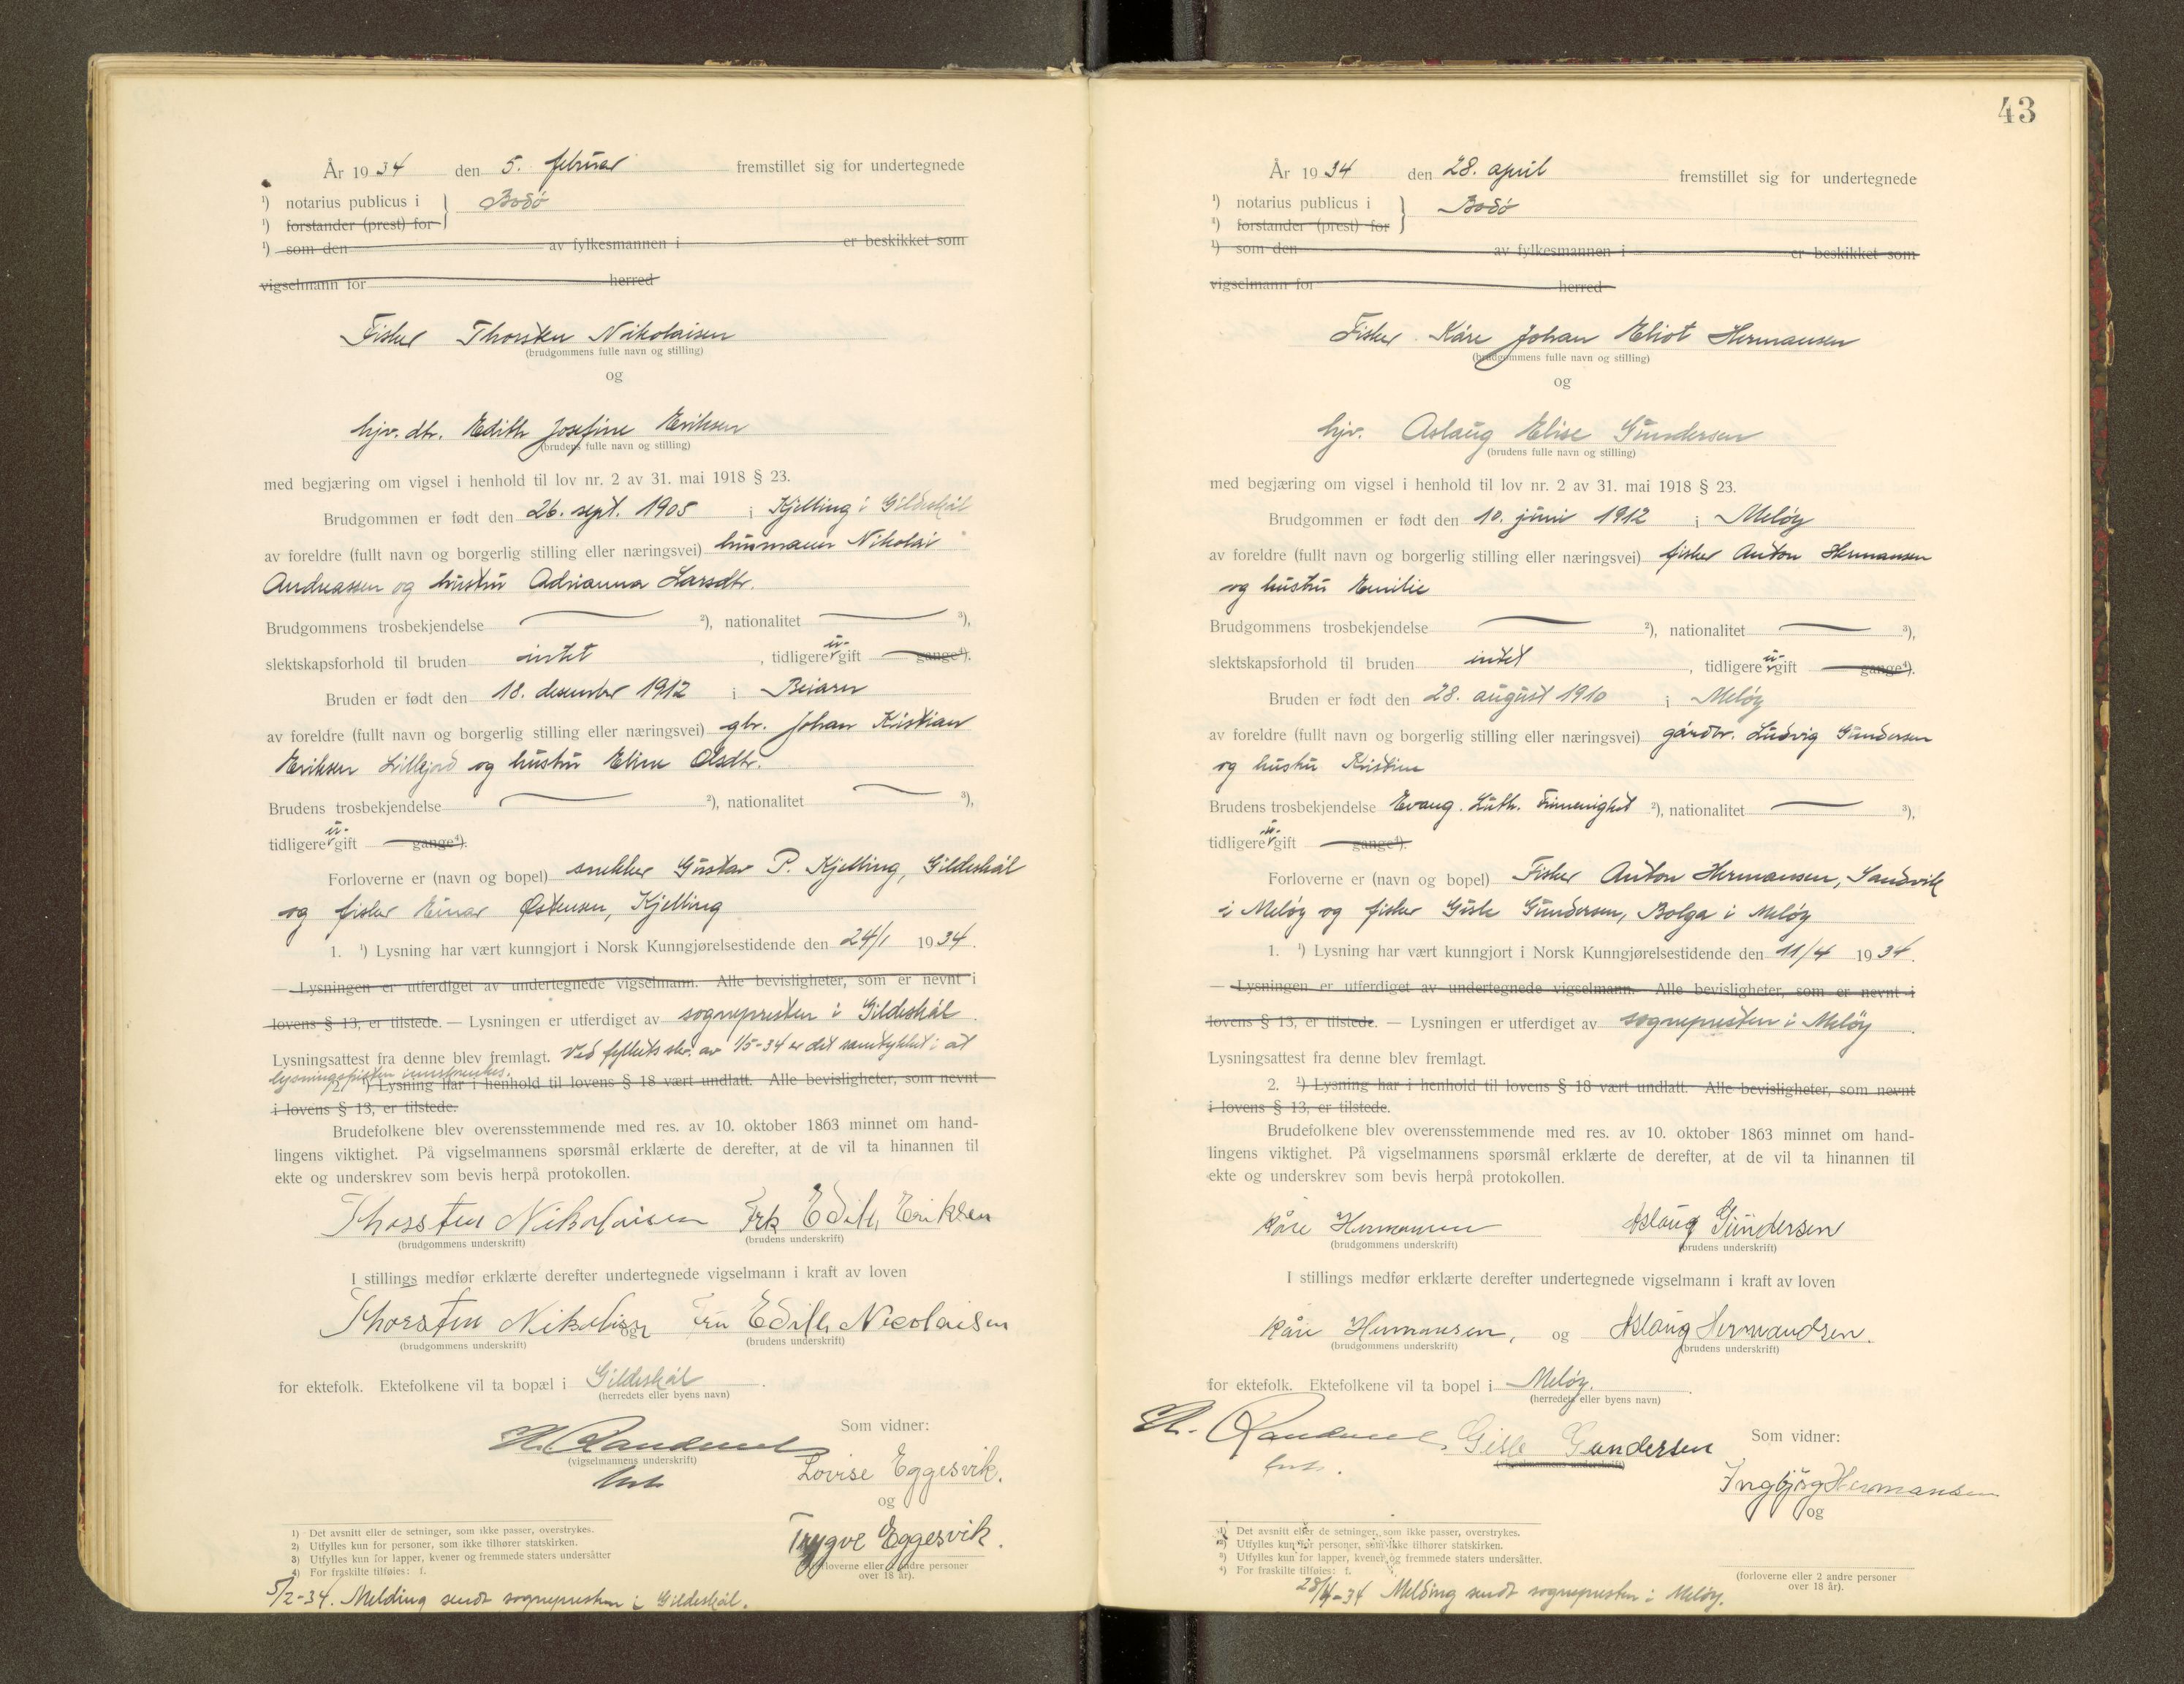 År 1934 den 5. februar fremstillet sig for undertegnede
¹) notarius publicus i } Bodö
¹) forstander (prest) for
¹) som den av fylkesmannen i er beskikket som
vigselmann for herred
Fisker Thorsten Nikolaisen
(brudgommens fulle navn og stilling)
og
hjv. dtr. Edith Josefine Eriksen
(brudens fulle navn og stilling)
med begjæring om vigsel i henhold til lov nr. 2 av 31. mai 1918 § 23.
Brudgommen er født den 26. sept. 1905 i Kjelling i Gildeskål
av foreldre (fullt navn og borgerlig stilling eller næringsvei) husmann Nikolai
Andreassen og hustru Adrianna Larsdtr.
Brudgommens trosbekjendelse — ²), nationalitet — ³),
slektskapsforhold til bruden intet , tidligere u- gift gange⁴).
Bruden er født den 18. desember 1912 i Beiarn
av foreldre (fullt navn og borgerlig stilling eller næringsvei) gbr. Johan Kristian
Eriksen Lillejord og hustru Eline Olsdtr.
Brudens trosbekjendelse — ²), nationalitet — ³),
tidligere u- gift gange⁴).
Forloverne er (navn og bopel) snekker Gustav P. Kjelling, Gildeskål
og fisker Einar Østensen, Kjelling
1. ¹) Lysning har vært kunngjort i Norsk Kunngjørelsestidende den 24/1 1934.
— Lysningen er utferdiget av undertegnede vigselmann. Alle bevisligheter, som er nevnt i
lovens § 13, er tilstede. — Lysningen er utferdiget av sognepresten i Gildeskål.
Lysningsattest fra denne blev fremlagt. Ved fylkets skr. av 1/5-34 er det samtykket i at
lysningsfristen innskrenkes.
2. ¹) Lysning har i henhold til lovens § 18 vært undlatt. Alle bevisligheter, som nevnt
i lovens § 13, er tilstede.
Brudefolkene blev overensstemmende med res. av 10. oktober 1863 minnet om hand-
lingens viktighet. På vigselmannens spørsmål erklærte de derefter, at de vil ta hinannen til
ekte og underskrev som bevis herpå protokollen.
Thorsten Nikolaisen Frk Edith Eriksen
(brudgommens underskrift) (brudens underskrift)
I stillings medfør erklærte derefter undertegnede vigselmann i kraft av loven
Thorsten Nikolaisen og Fru Edith Nicolaisen
(brudgommens underskrift) (brudens underskrift)
for ektefolk. Ektefolkene vil ta bopæl i Gildeskål.
(herredets eller byens navn)
Som vidner:
(vigselmannens underskrift)
Lovise Eggesvik.
og
Trygve Eggesvik.
(forloverne eller 2 andre personer
over 18 år).
1) Det avsnitt eller de setninger, som ikke passer, overstrykes.
2) Utfylles kun for personer, som ikke tilhører statskirken.
3) Utfylles kun for lapper, kvener og fremmede staters undersåtter
4) For fraskilte tilføies: f.
5/2-34. Melding sendt sognepresten i Gildeskål.
43
År 1934 den 28. april fremstillet sig for undertegnede
¹) notarius publicus i } Bodö
¹) forstander (prest) for
¹) som den av fylkesmannen i er beskikket som
vigselmann for herred
Fisker Kåre Johan Eliot Hermansen
(brudgommens fulle navn og stilling)
og
hjv. Aslaug Elise Gundersen
(brudens fulle navn og stilling)
med begjæring om vigsel i henhold til lov nr. 2 av 31. mai 1918 § 23.
Brudgommen er født den 10. juni 1912 i Melöy
av foreldre (fullt navn og borgerlig stilling eller næringsvei) fisker Anton Hermansen
og hustru Emilie
Brudgommens trosbekjendelse — ²), nationalitet — ³),
slektskapsforhold til bruden intet , tidligere u- gift gange⁴).
Bruden er født den 28. august 1910 i Melöy
av foreldre (fullt navn og borgerlig stilling eller næringsvei) gårdbr. Ludvig Gundersen
og hustru Kristine
Brudens trosbekjendelse Evang. Luth. Frimenighet ²), nationalitet — ³),
tidligere u- gift gange⁴).
Forloverne er (navn og bopel) Fisker Anton Hermansen, Sandvik
i Melöy og fisker Gisle Gundersen, Bolga i Melöy
1. ¹) Lysning har vært kunngjort i Norsk Kunngjørelsestidende den 11/4 1934.
— Lysningen er utferdiget av undertegnede vigselmann. Alle bevisligheter, som er nevnt i
lovens § 13, er tilstede. — Lysningen er utferdiget av sognepresten i Melöy.
Lysningsattest fra denne blev fremlagt.
2. ¹) Lysning har i henhold til lovens § 18 vært undlatt. Alle bevisligheter, som nevnt
i lovens § 13, er tilstede.
Brudefolkene blev overensstemmende med res. av 10. oktober 1863 minnet om hand-
lingens viktighet. På vigselmannens spørsmål erklærte de derefter, at de vil ta hinannen til
ekte og underskrev som bevis herpå protokollen.
Kåre Hermansen Aslaug Gundersen
(brudgommens underskrift) (brudens underskrift)
I stillings medfør erklærte derefter undertegnede vigselmann i kraft av loven
Kåre Hermansen, og Aslaug Hermandsen.
(brudgommens underskrift) (brudens underskrift)
for ektefolk. Ektefolkene vil ta bopel i Melöy.
(herredets eller byens navn)
Gisle Gundersen Som vidner:
Ingbjörg Hermansen
og
(forloverne eller 2 andre personer
over 18 år).
¹) Det avsnitt eller de setninger, som ikke passer, overstrykes.
²) Utfylles kun for personer, som ikke tilhører statskirken.
³) Utfylles kun for lapper, kvener og fremmede staters undersåtter.
⁴) For fraskilte tilføies: f.
28/4-34 Melding sendt sognepresten i Melöy.